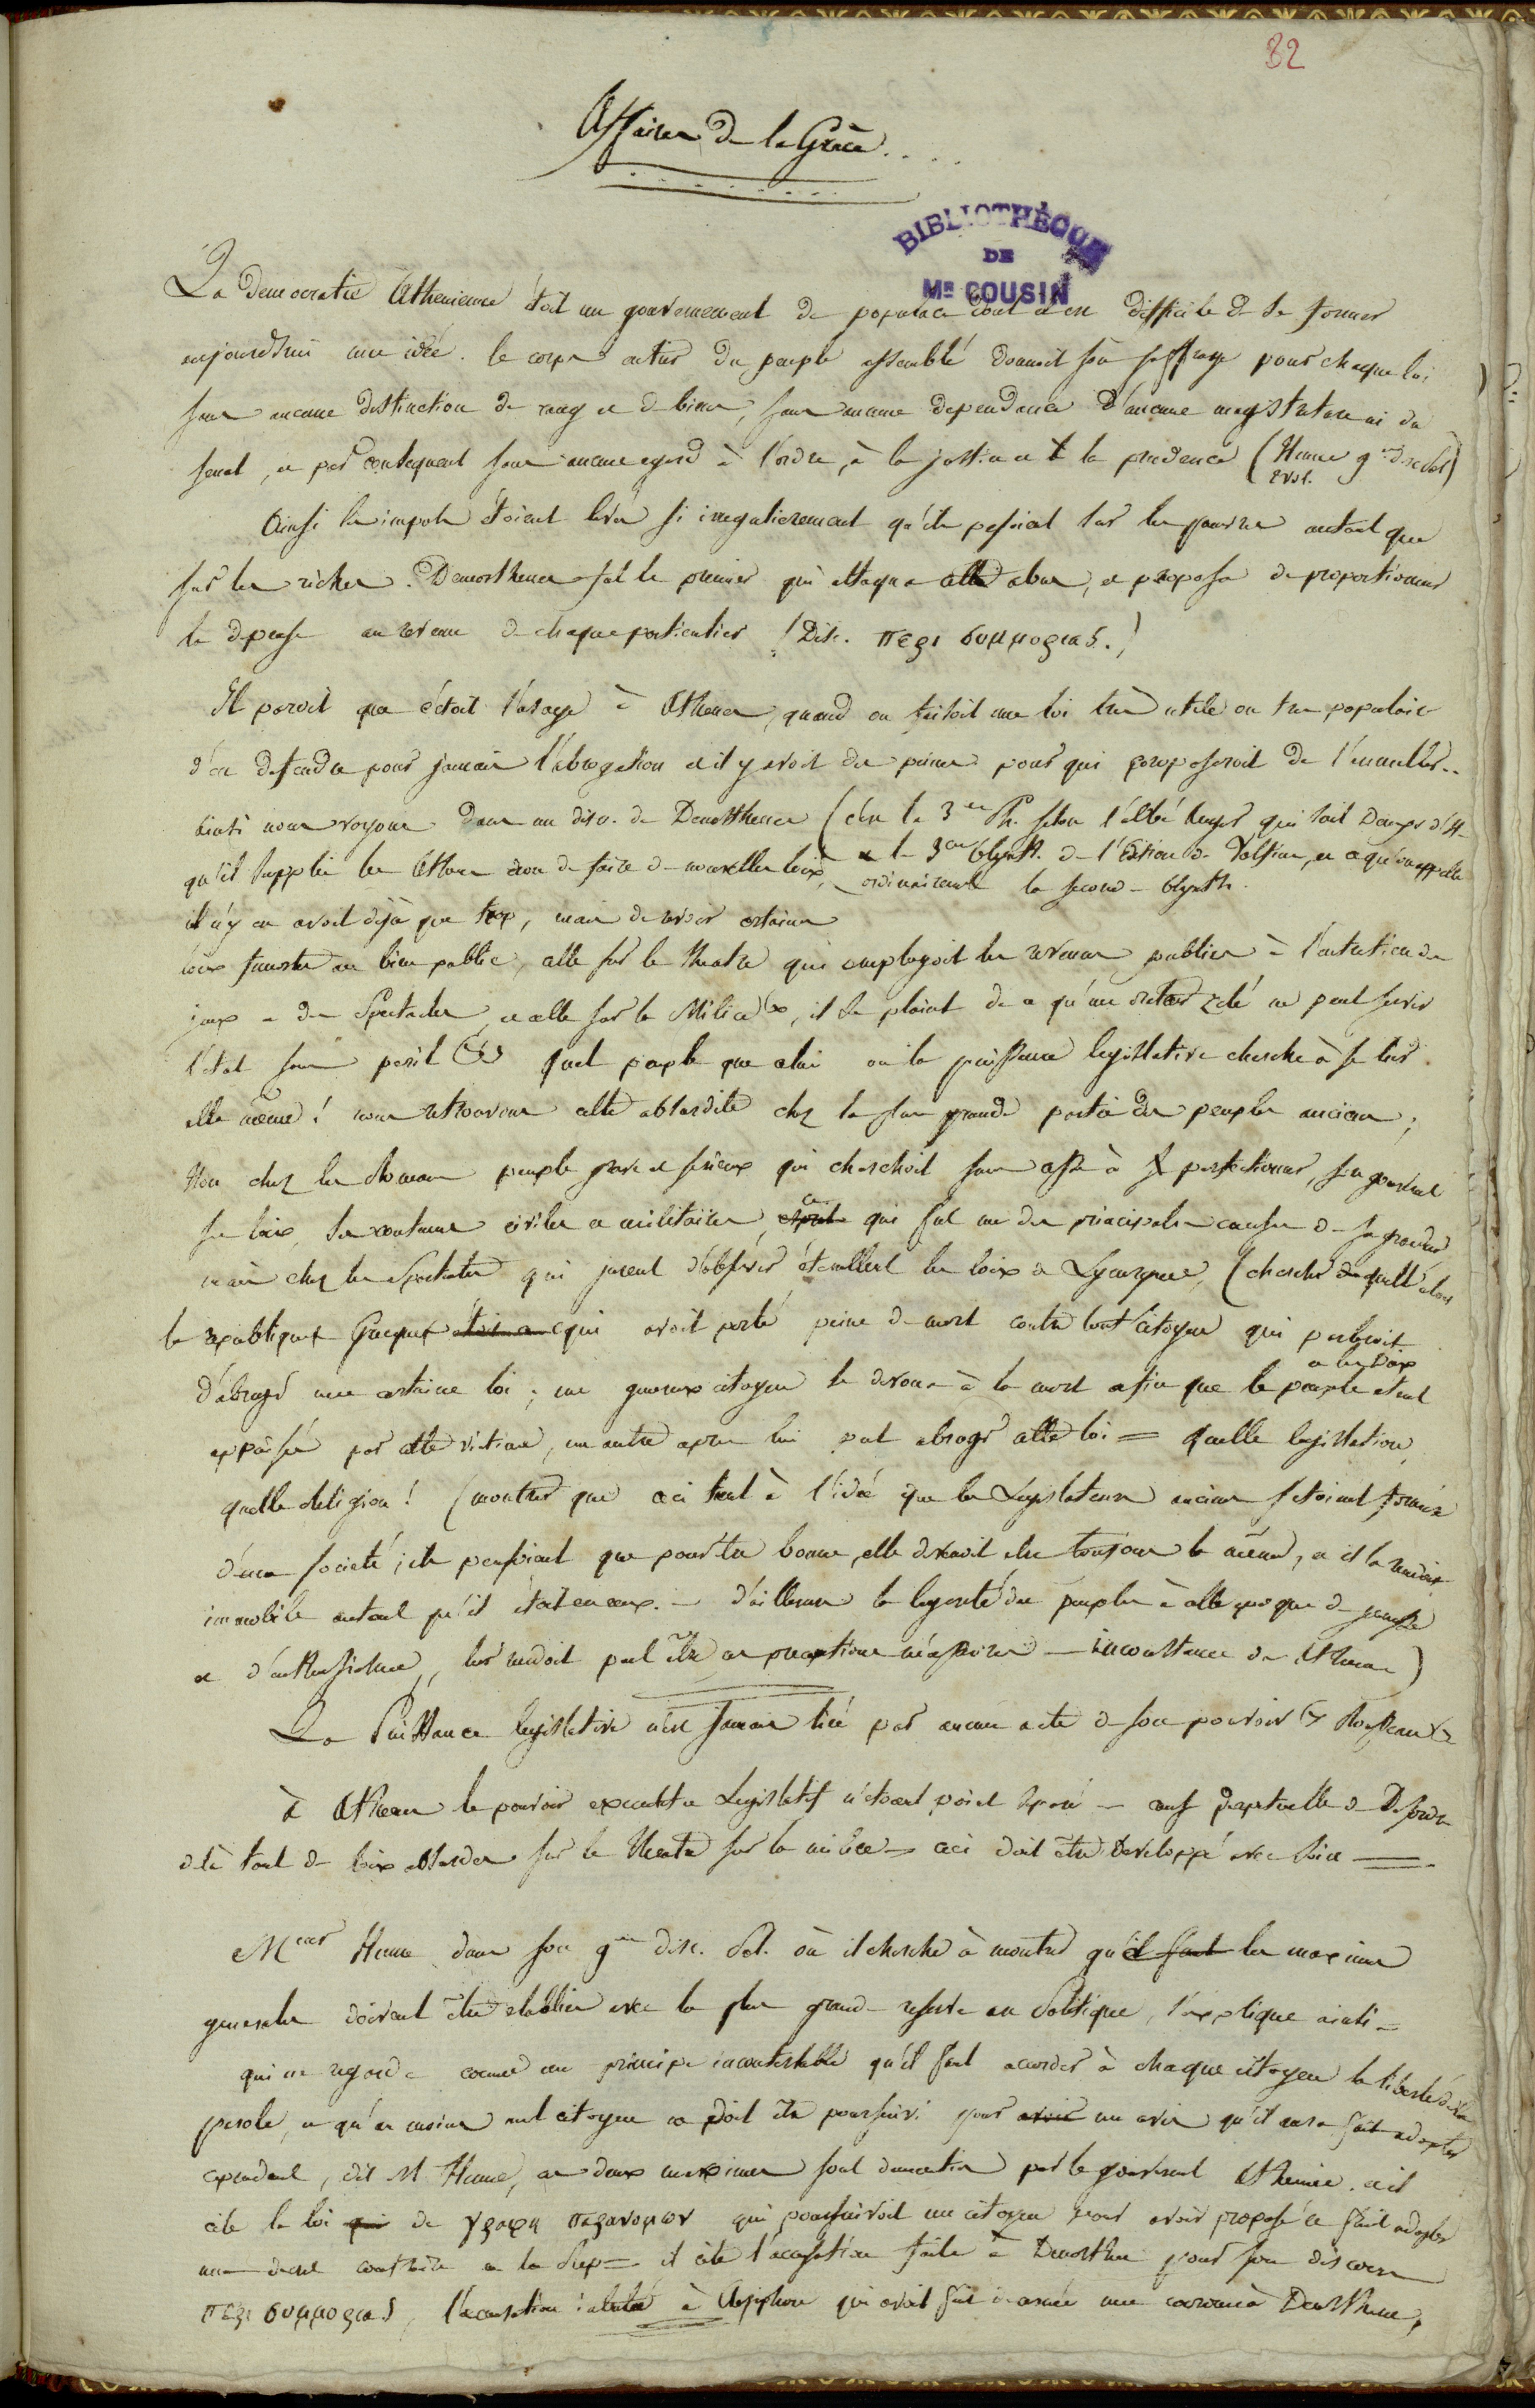 82
Affaires de la Grèce....
BIBLIOTHÈQUE
DE
Mr COUSIN
La democratie Athenienne étoit un gouvernement de populace dont il est difficile de se former
aujourdhui une idée. le corps entier du peuple assemblé donnoit son suffrage pour chaque loi
sans aucune distinction de rang et de biens, sans aucune dependance d'aucune magistrature ni du
senat, et par consequent sans aucun egard à l'ordre, à la justice et à la prudence (Hume 9e disc. pol.)
Ainsi les impots étoient levés si irregulierement qu'ils pesoient sur les pauvres autant que
sur les riches. Demosthenes fut le premier qui attaqua cette abus, et proposa de proportionner
la depense au revenu de chaque particulier (Disc. περι συμμοριας.)
Il paroit que c'étoit l'usage à Athenes, quand on faisoit une loi tres utile ou tres populaire
d'en defendre pour jamais l'abrogation et il y avoit des peines pour qui proposeroit de l'annuller..
ainsi nous voyons dans un disc. de Demosthenes (c'est la 3e Ph. selon l'abbé
qu'il supplie les Athen. non de faire de nouvelles loix, la 3e Olynth. de l'Edition de Volfius, et ce qu'on appelle
ordinairement la seconde Olynth.
il n'y en avoit déjà que trop, mais de revoir certaines
loix funestes au bien public, celle sur le theatre qui employoit les revenus publics à l'entretien des
jeux et des Spectacles, et celle sur la Milice, il se plaint de ce qu'un orateur zelé ne peut servir
l'état sans peril Quel peuple que celui où la puissance legislative cherche à se lier
elle même! nous retrouvons cette absurdité chez la plus grande partie des peuples anciens;
Non chez les Romains peuple grave et serieux qui cherchoit sans cesse à perfectionner, son gouvernt
ses loix, ses coutumes civiles et militaires, ce qui fut une des principales causes de sa grandeur
mais chez les Spartiates qui jurent d'observer éternellemt les loix de Lycurgue, (chercher quelle etoit
la republique Grecque qui avoit porté peine de mort contre tout citoyen qui parleroit
d'abroger une certaine loi; un genereux citoyen se devoua à la mort afin que le peuple et les Loix etant
appaisés par cette victime, un autre apres lui put abroger cette loi = quelle legislation,
quelle religion! (montrer que ceci tient à l'idée que les Legislateurs anciens s'etoient formée
d'une societé; ils pensoient que pour etre bonne, elle devoit etre toujours la même, et ils la rendoient
immobile autant qu'il étoit en eux. — d'ailleurs la legereté des peuples à cette epoque de jeunesse
et d'enthousiasme, leur rendoit peut être ces precautions necessaires — inconstance des Athenes)
La Puissance legislative n'est jamais liée par aucun acte de son pouvoir Rousseau
à Athenes le pouvoir executif et Legislatif n'etoient point separé — cause perpetuelle de Desordre
de là tant de loix absurdes sur le theatre sur la milice — ceci doit être developpé avec soin —
Mr Hume dans son 9e disc. Pol. où il cherche à montrer qu'il faut les maximes
generales doivent être etablies avec la plus grande reserve en Politique, s'explique ainsi =
qui ne regarde comme un principe incontestable qu'il faut accorder à chaque citoyen la liberté de la
parole, et qu'au moins nul citoyen ne doit être poursuivi pour un avis qu'il aura fait adopter
cependant, dit M Hume, ces deux maximes sont dementies par le gouvernt Athenien. et il
cite la loi de γραφη παρανομων qui poursuivoit un citoyen pour avoir proposé et fait adopter
un decret contraire = il cite l'accusation faite à Demosthene pour son discours
περι συμμοριας, l'accusation intentée à Ctesiphon qui avoit fait decerner une couronne à Demosthene,